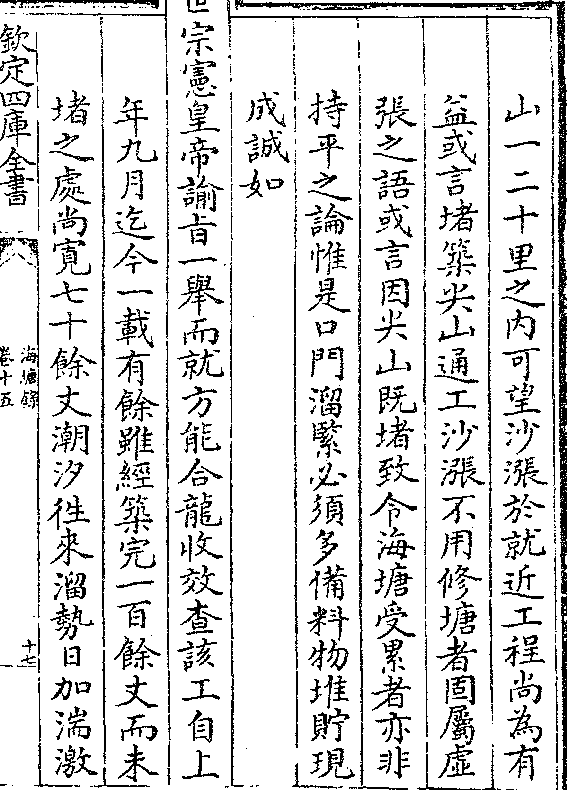 山一二十里之内可望沙漲於就近工程尚為有
益或言堵築尖山通工沙漲不用修塘者固屬虛
張之語或言因尖山既堵致令海塘受累者亦非
持平之論惟是口門溜緊必須多備料物堆貯現
成誠如
世宗憲皇帝諭旨一舉而就方能合龍收效查該工自上
年九月迄今一載有餘雖經築完一百餘丈而未
堵之處尚寛七十餘丈潮汐徃來溜勢日加湍激
欽定四庫全書
海塘錄
卷十五
十七